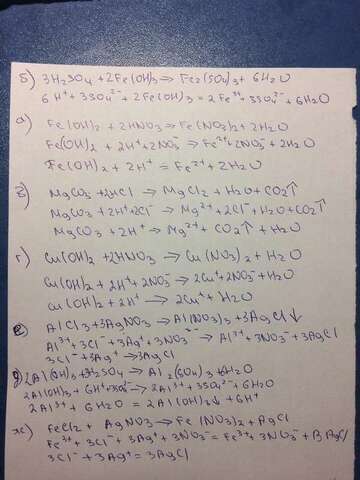 б) 3H2SO4 + 2Fe(OH)3 → Fe2(SO4)3 + 6H2O
6H⁺ + 3SO4²⁻ + 2Fe(OH)3 = 2Fe³⁺ + 3SO4²⁻ + 6H2O
а) Fe(OH)2 + 2HNO3 → Fe(NO3)2 + 2H2O
Fe(OH)2 + 2H⁺ + 2NO3⁻ → Fe²⁺ + 2NO3⁻ + 2H2O
Fe(OH)2 + 2H⁺ = Fe²⁺ + 2H2O
в) MgCO3 + 2HCl → MgCl2 + H2O + CO2↑
MgCO3 + 2H⁺ + 2Cl⁻ → Mg²⁺ + 2Cl⁻ + H2O + CO2↑
MgCO3 + 2H⁺ → Mg²⁺ + CO2↑ + H2O
г) Cu(OH)2 + 2HNO3 → Cu(NO3)2 + H2O
Cu(OH)2 + 2H⁺ + 2NO3⁻ → 2Cu⁺ + 2NO3⁻ + H2O
Cu(OH)2 + 2H⁺ → 2Cu⁺ + H2O
е) AlCl3 + 3AgNO3 → Al(NO3)3 + 3AgCl↓
Al³⁺ + 3Cl⁻ + 3Ag⁺ + 3NO3⁻ → Al³⁺ + 3NO3⁻ + 3AgCl
3Cl⁻ + 3Ag⁺ → 3AgCl
д) 2Al(OH)3 + 3H2SO4 → Al2(SO4)3 + 6H2O
2Al(OH)3 + 6H⁺ + 3SO4²⁻ → 2Al³⁺ + 3SO4²⁻ + 6H2O
2Al³⁺ + 6H2O = 2Al(OH)3↓ + 6H⁺
ж) FeCl2 + AgNO3 → Fe(NO3)2 + AgCl
Fe³⁺ + 3Cl⁻ + 3Ag⁺ + 3NO3⁻ = Fe³⁺ + 3NO3⁻ + 3AgCl
3Cl⁻ + 3Ag⁺ = 3AgCl